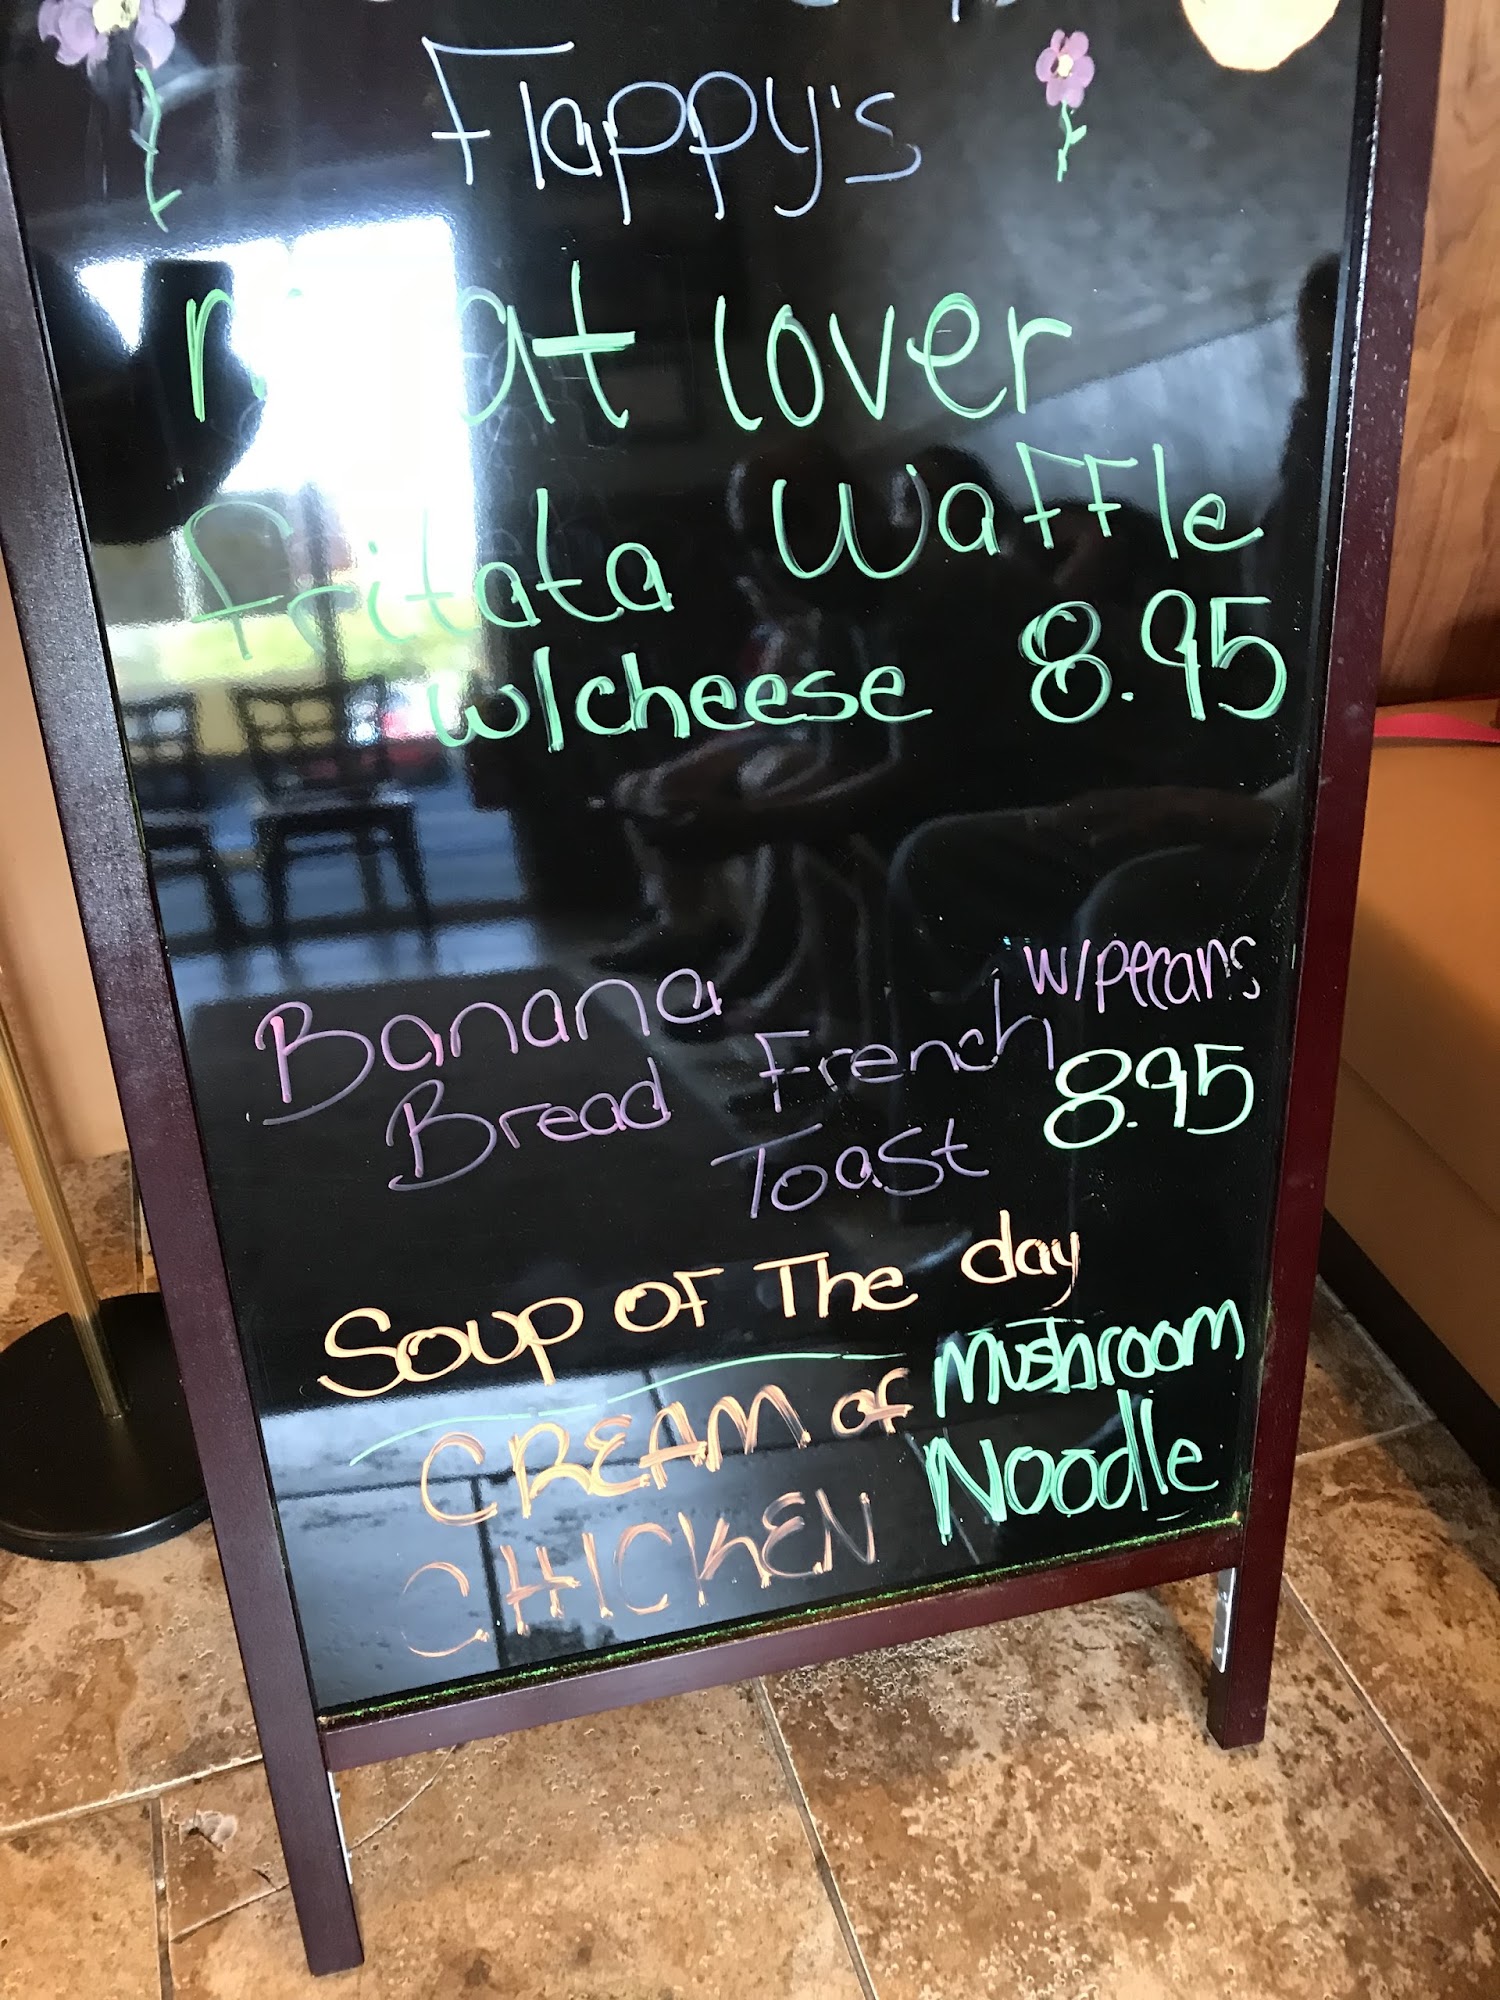 Flappy's
meat lover
fritata Waffle
w/cheese 8.95
Banana French w/pecans
Bread Toast 8.95
Soup of The day
CREAM of Mushroom
CHICKEN Noodle